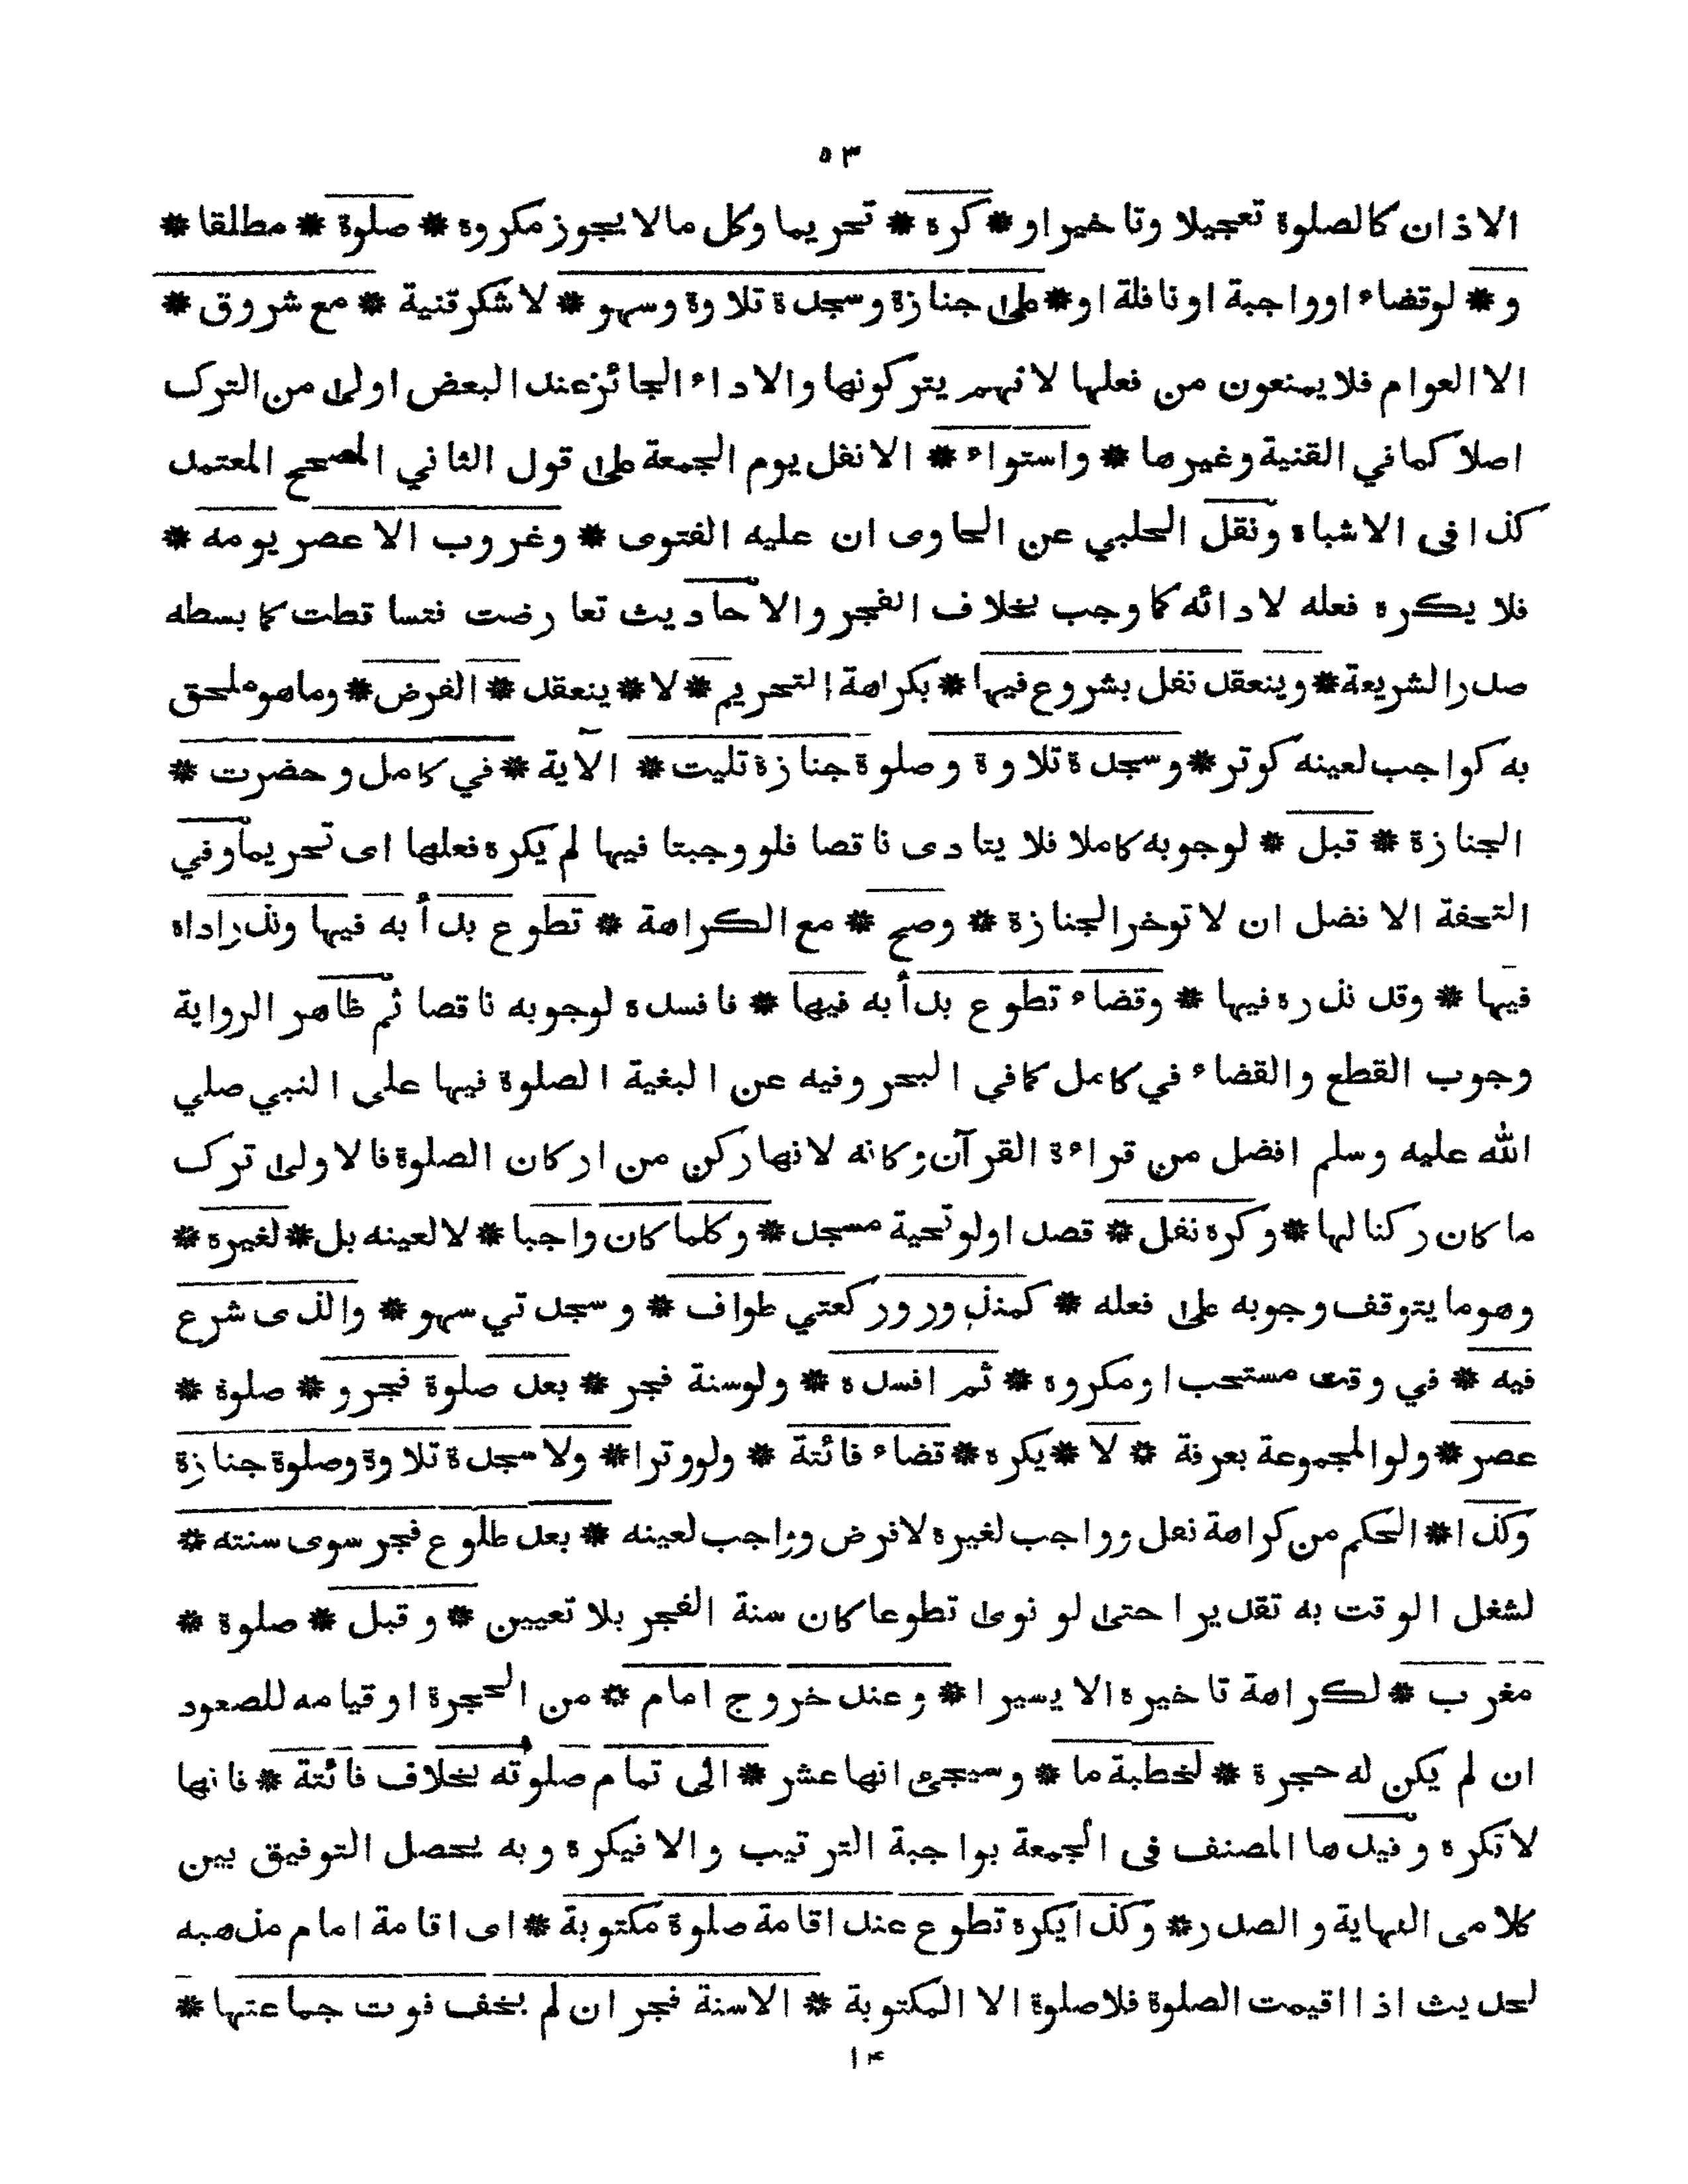 ٥٣
الاذان كالصلوة تعجيلا وتاخيرا و * كره * تحريما وكل مالا يجوز مكروه * صلوة * مطلقا *
و * لوقضاء اوواجبة اونافلة او * على جنازة وسجدة تلاوة وسهو * لاشكرقنية * مع شروق *
الا العوام فلايمنعون من فعلها لانهم يتركونها والاداء الجائزعند البعض اولى من الترك
اصلا كمافي القنية وغيرها * واستواء * الانفل يوم الجمعة على قول الثاني المصحح المعتمد
كذا فى الاشباه ونقل الحلبي عن الحاوى ان عليه الفتوى * وغروب الا عصر يومه *
فلا يكره فعله لادائه كما وجب بخلاف الفجر والاحاديث تعارضت فتساقطت كما بسطه
صدرالشريعة * وينعقد نفل بشروع فيها * بكراهة التحريم * لا * ينعقد * الفرض * وماهوملحق
به كواجب لعينه كوتر * وسجدة تلاوة وصلوة جنازة تليت * الآية * في كامل وحضرت *
الجنازة * قبل * لوجوبه كاملا فلا يتادى ناقصا فلو وجبتا فيها لم يكره فعلها اى تحريما وفي
التحفة الافضل ان لاتوخرالجنازة * وصح * مع الكراهة * تطوع بدأ به فيها ونذراداه
فيها * وقد نذره فيها * وقضاء تطوع بدأ به فيها * فافسده لوجوبه ناقصا ثم ظاهر الرواية
وجوب القطع والقضاء في كامل كمافي البحر وفيه عن البغية الصلوة فيها على النبي صلي
الله عليه وسلم افضل من قراءة القرآن وكانه لانها ركن من اركان الصلوة فالاولى ترك
ما كان ركنا لها * وكره نفل * قصد اولوتحية مسجد * وكلما كان واجبا * لالعينه بل * لغيره *
وهومايتوقف وجوبه على فعله * كمنذور وركعتي طواف * وسجدتي سهو * والذى شرع
فيه * في وقت مستحب اومكروه * ثم افسده * ولوسنة فجر * بعد صلوة فجر و * صلوة *
عصر * ولوالمجموعة بعرفة * لا * يكره * قضاء فائتة * ولووترا * ولاسجدة تلاوة وصلوة جنازة
وكذا * الحكم من كراهة نفل وواجب لغيره لافرض وواجب لعينه * بعد طلوع فجر سوى سنته *
لشغل الوقت به تقديرا حتى لو نوى تطوعا كان سنة الفجر بلا تعيين * وقبل * صلوة *
مغرب * لكراهة تاخيره الا يسيرا * وعند خروج امام * من الحجرة اوقيامه للصعود
ان لم يكن له حجرة * لخطبة ما * وسيجئ انها عشر * الى تمام صلوته بخلاف فائتة * فانها
لاتكره وقيدها المصنف فى الجمعة بواجبة الترتيب والا فيكره وبه يحصل التوفيق بين
كلامى النهاية والصدر * وكذا يكره تطوع عند اقامة صلوة مكتوبة * اى اقامة امام مذهبه
لحديث اذا اقيمت الصلوة فلاصلوة الا المكتوبة * الاسنة فجر ان لم يخف فوت جماعتها *
١۴